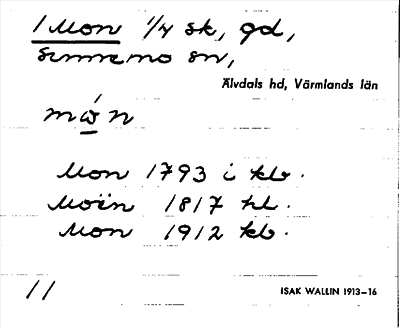 1 Mon 1/4 sk, gd,
Sunnemo sn,
Älvdals hd, Värmlands län
mo̱ǹ
Mon 1793 i kb.
Moën 1817 hl.
Mon 1912 kb.
11
ISAK WALLIN 1913–16